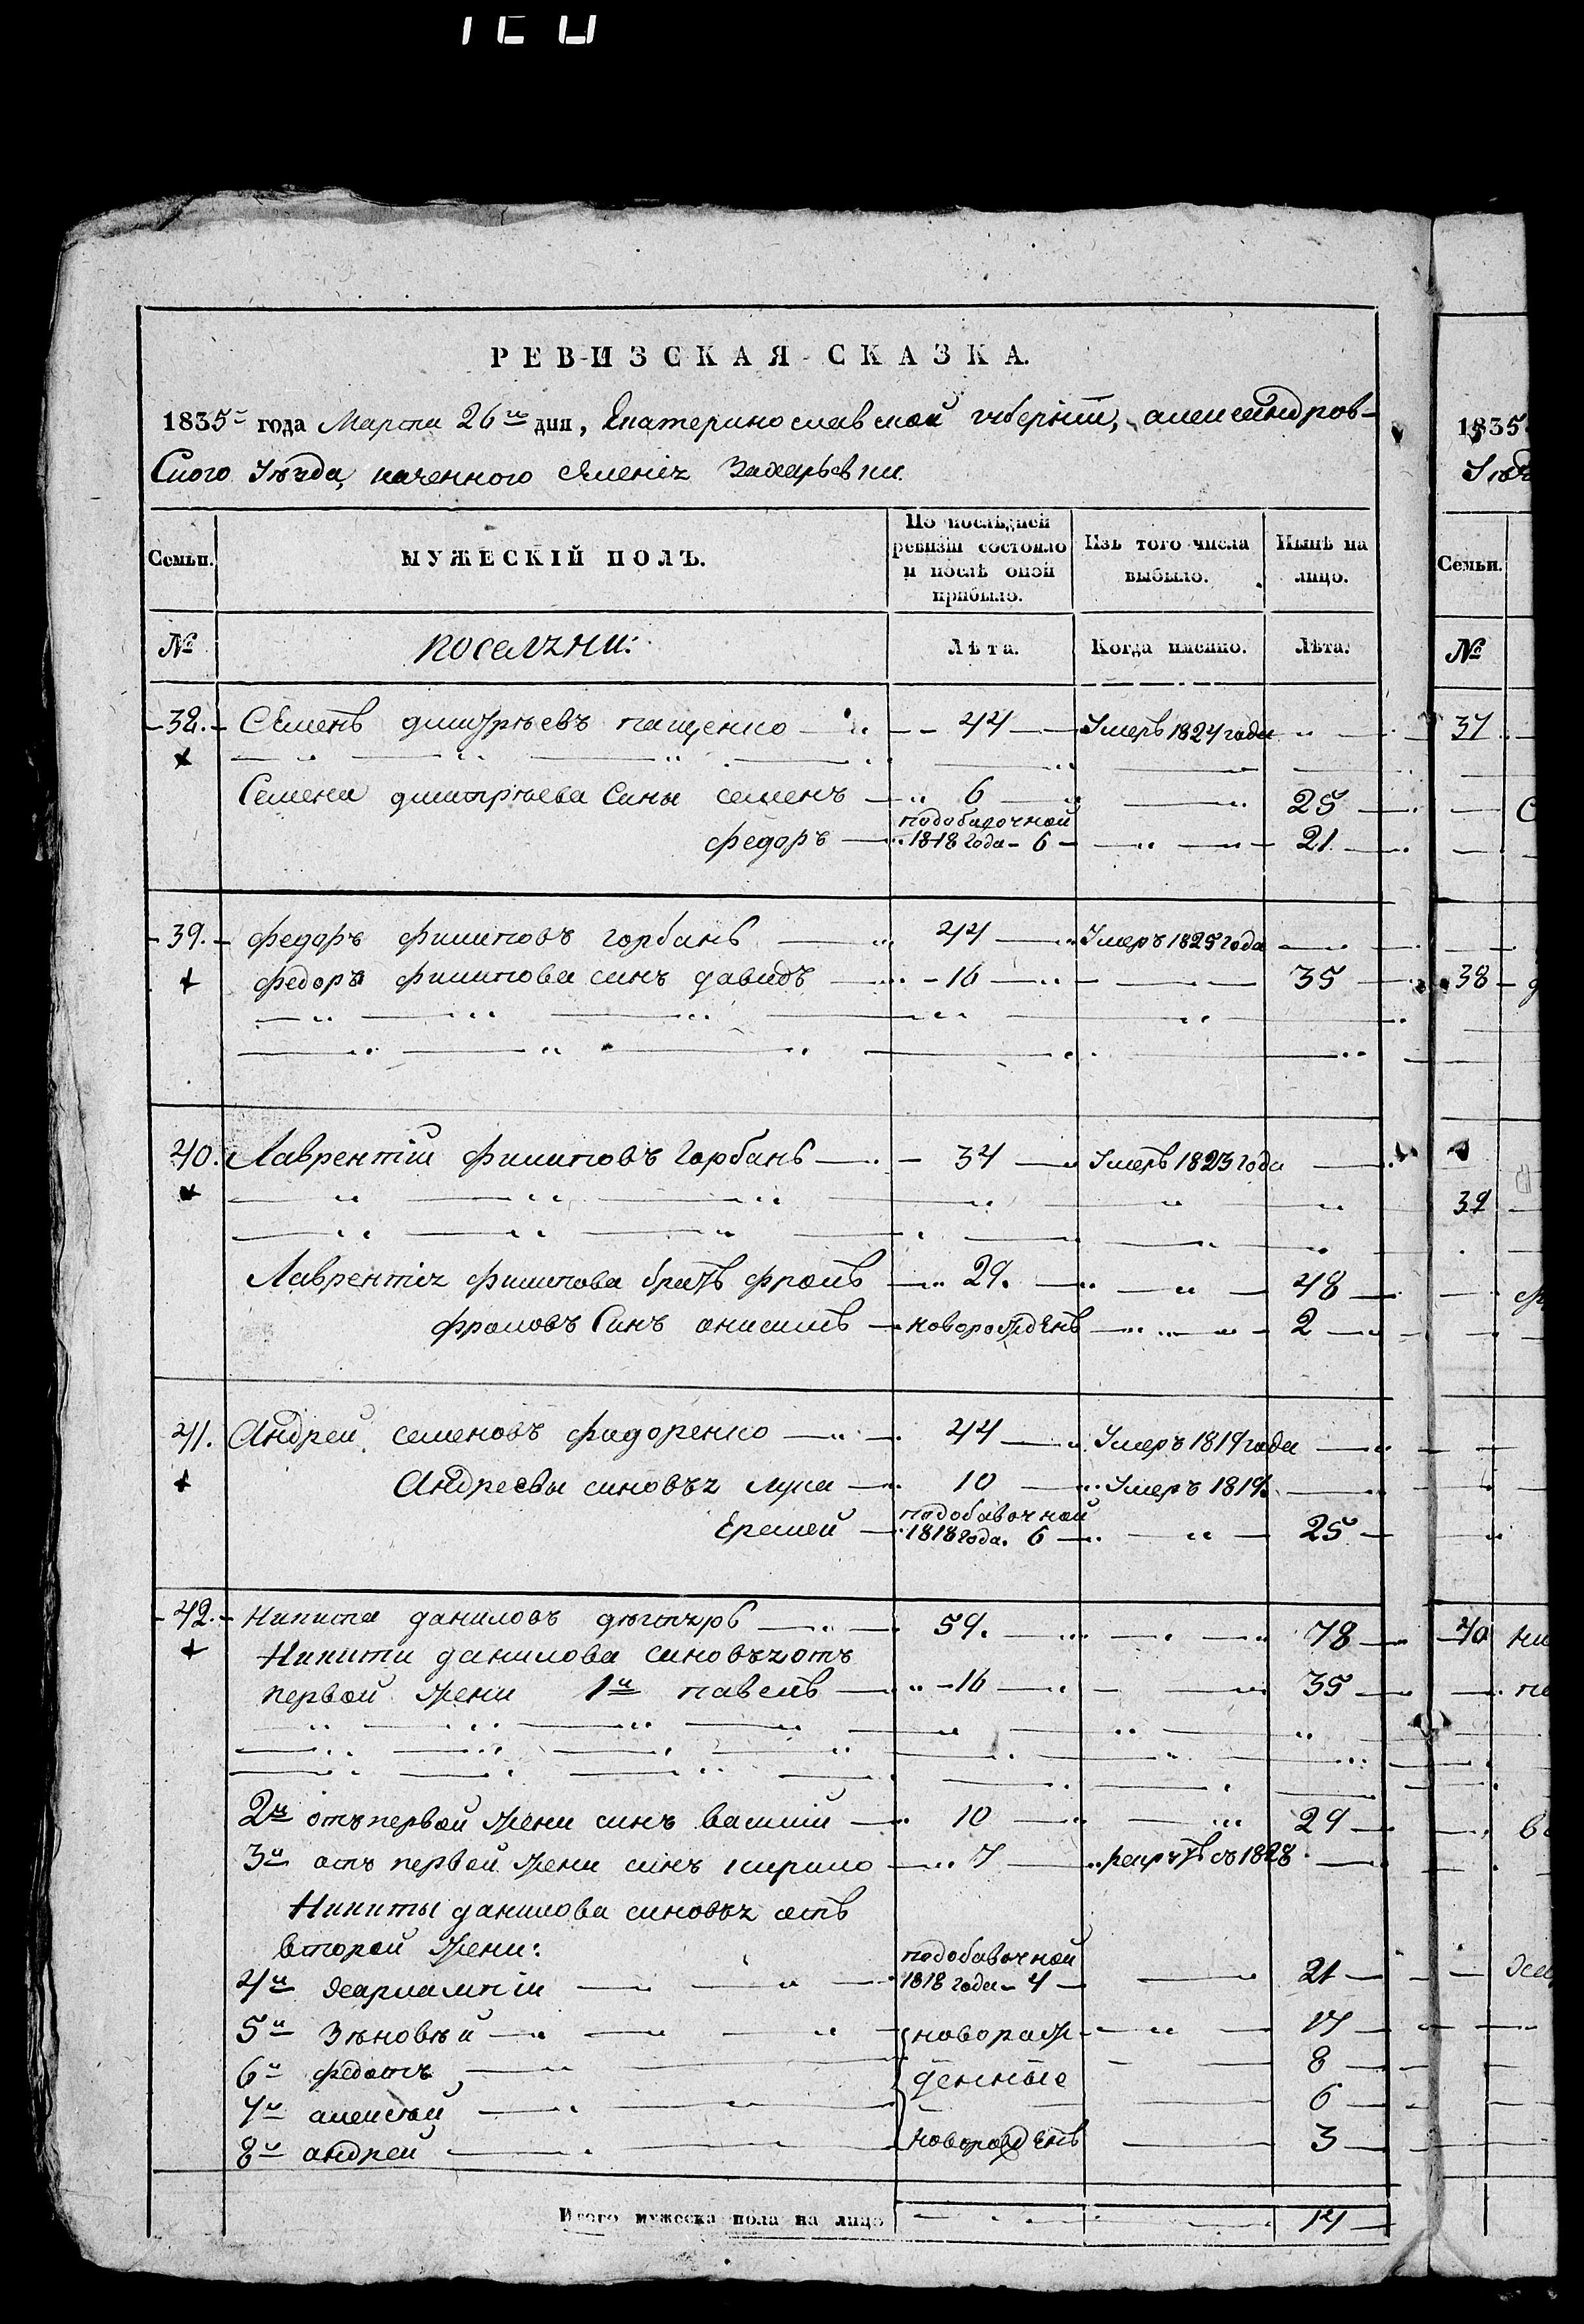 РЕВИЗСКАЯ СКАЗКА.
1835го года Марта 26го дня, Екатеринославской губерніи, александров-
Ского Уѣзда, казенного селенія Захарьевки.
Семьи. МУЖЕСКІЙ ПОЛЪ. По послѣдней ревизіи состояло и послѣ оной прибыло. Изъ того числа выбыло. Нынѣ на лицо.
№ поселяни: Лѣта. Когда именно. Лѣта.
38. Семенъ дмитріевъ пащенко 44 Умеръ 1824 года
Семена дмитріева Сины семенъ 6 25
федоръ подобавочной 1818 года 6 21
39. федоръ филиповъ горбань 44 Умеръ 1825 года
федора филипова синъ давидъ 16 35
40. Лаврентій филиповъ горбань 34 Умеръ 1823 года
Лаврентія филипова братъ фролъ 29. 48
фроловъ Синъ анисимъ новорожденъ 2
41. Андрей семеновъ фидоренко 44 Умеръ 1819 года
Андреевы синовья лука 10 Умеръ 1819.
Еремей подобавочной 1818 года. 6 25
42. Никита даниловъ дѣгтярь 59. 78
Никиты данилова синовья отъ
первой жени 1й павелъ 16 35
2й отъ первой жени синъ василій 10 29
3й отъ первой жени синъ кирило 7 рекрутъ съ 1828
Никиты данилова синовья отъ
второй жени:
4й харлампій подобавочной 1818 года 4 21
5й Зѣновѣй новораж- 17
6й федотъ денные 8
7й алексѣй 6
8й андрей новорожденъ 3
Итого мужеска пола на лицо 14
1835
Уѣз
Семьи.
№
37
38
39
40 ни